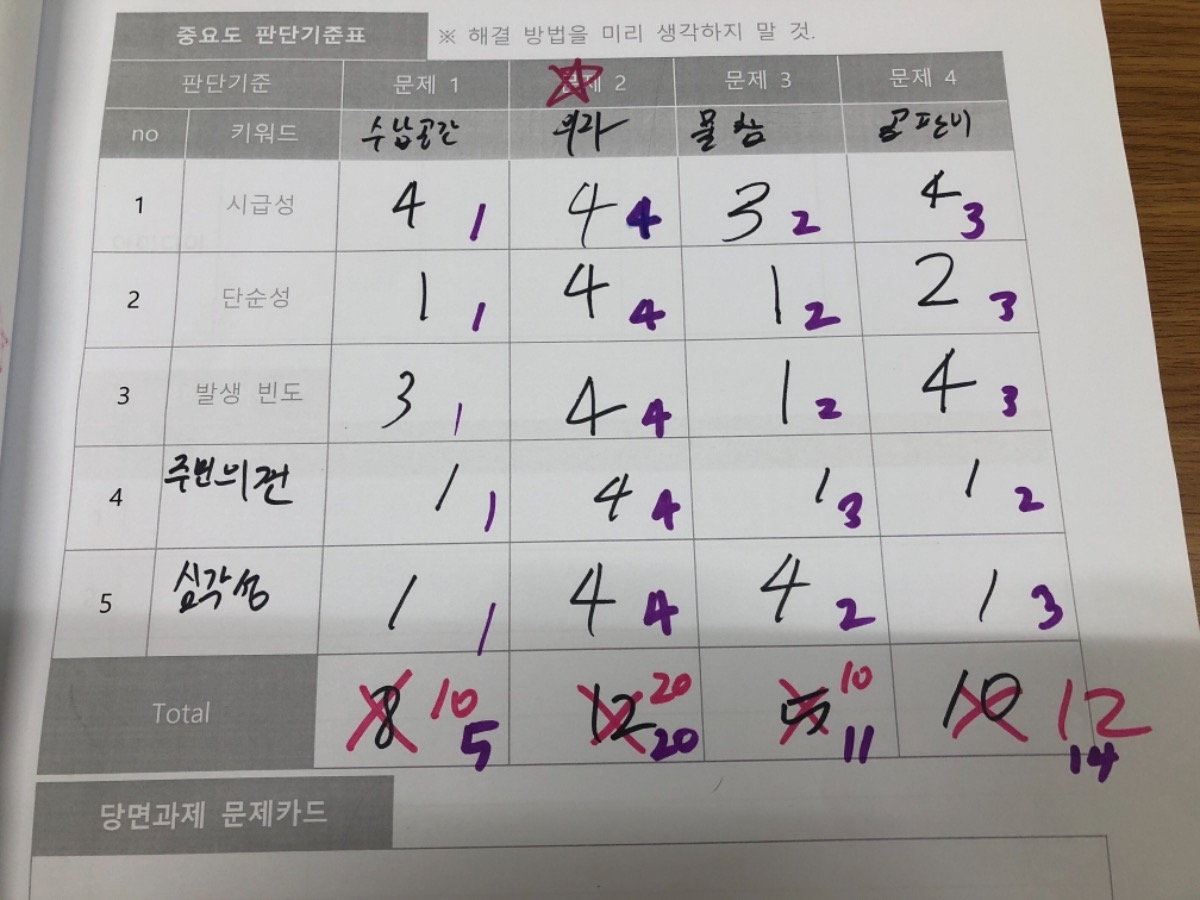 중요도 판단기준표 ※ 해결 방법을 미리 생각하지 말 것.
판단기준 문제 1 문제 2 문제 3 문제 4
no 키워드 수납공간 물참 곰팡이
1 시급성 4 1 4 4 3 2 4 3
2 단순성 1 1 4 4 1 2 2 3
3 발생 빈도 3 1 4 4 1 2 4 3
4 주변의견 1 1 4 4 1 3 1 2
5 심각성 1 1 4 4 4 2 1 3
Total 8 10 5 12 20 20 5 10 11 10 12 14
당면과제 문제카드